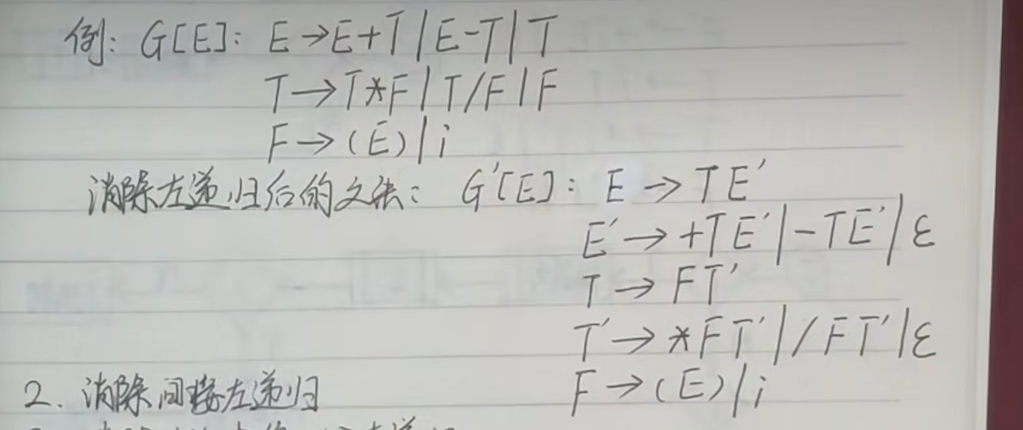 例: G[E]: E→E+T|E-T|T
T→T*F|T/F|F
F→(E)|i
消除左递归后的文法: G'[E]: E→TE'
E'→+TE'|-TE'|ε
T→FT'
T'→*FT'|/FT'|ε
F→(E)|i
2. 消除间接左递归